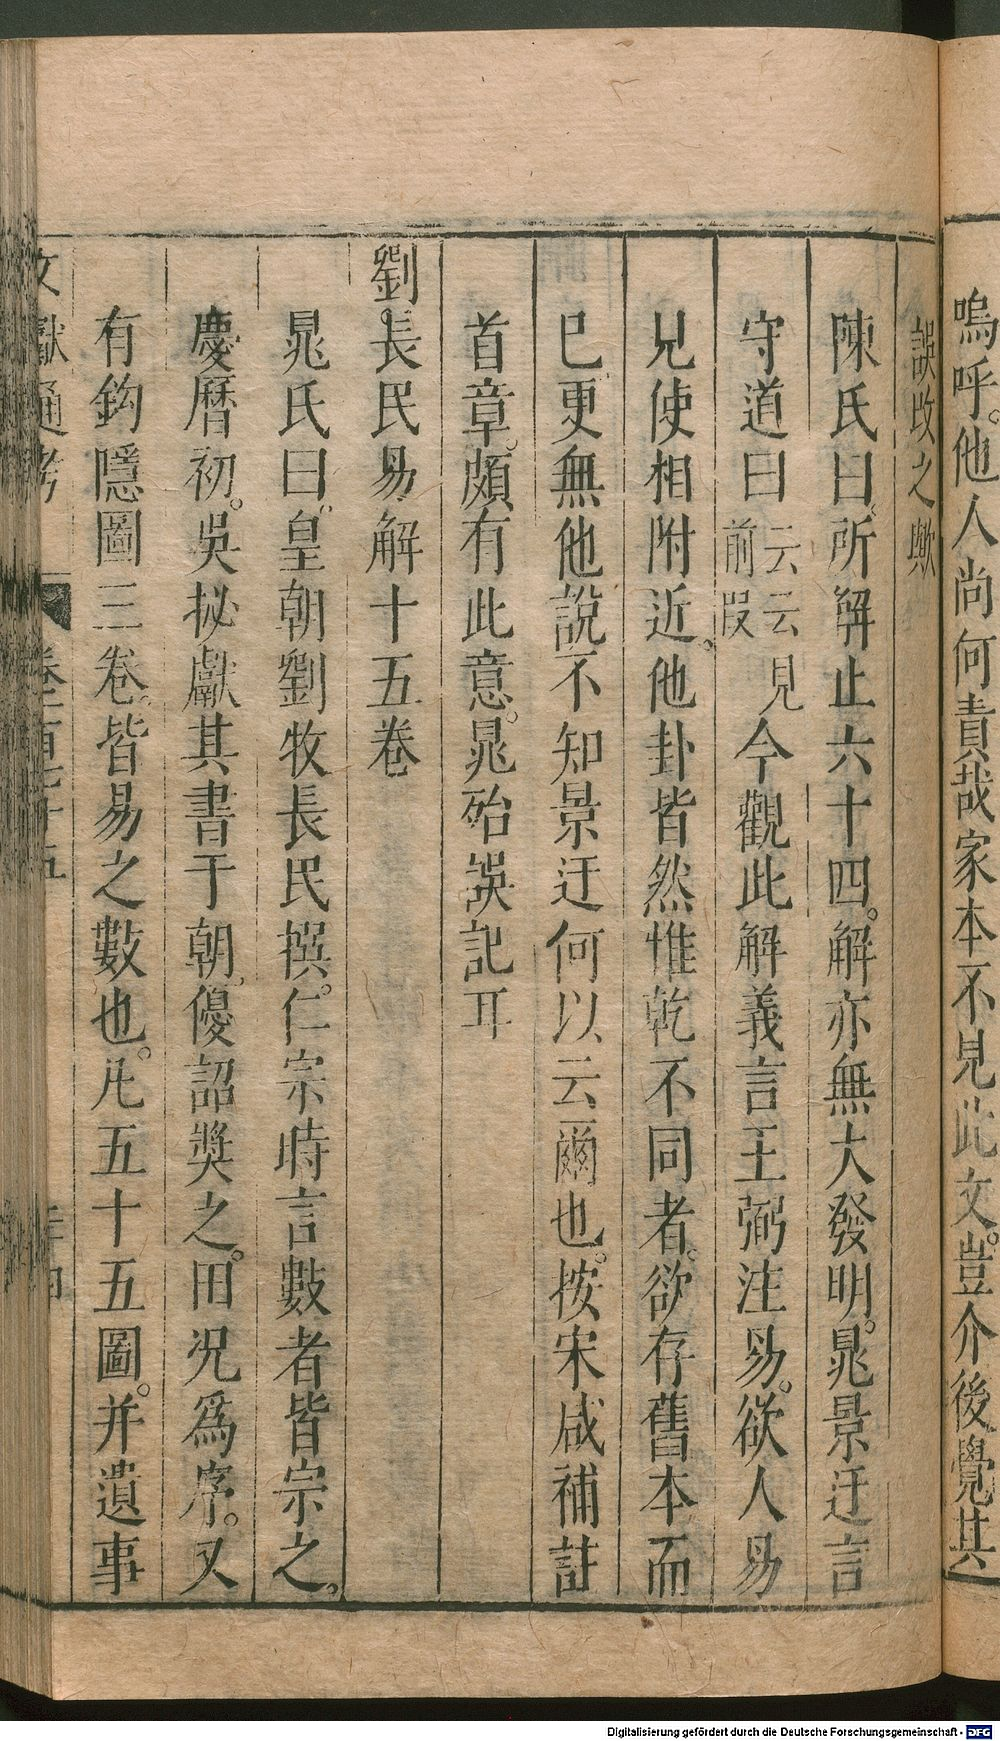 嗚呼。他人尚何責哉家本不見此文。豈介後覺其
誤改之歟
陳氏曰。所解止六十四。解亦無大發明。晁景迂言
守道曰云云見前段今觀此解義言王弼注易。欲人易
見使相附近。他卦皆然惟乾不同者。欲存舊本而
已更無他說不知景迂何以云爾也。按宋咸補註
首章。頗有此意。晁殆誤記耳
劉。長民易解十五卷
晁氏曰。皇朝劉牧長民撰。仁宗時言數者皆宗之。
慶曆初。吳祕獻其書于朝。優詔獎之。田況爲序。又
有鈎隱圖三卷。皆易之數也。凡五十五圖。并遺事
文獻通考 卷一百七十五 二十四
Digitalisierung gefördert durch die Deutsche Forschungsgemeinschaft - DFG